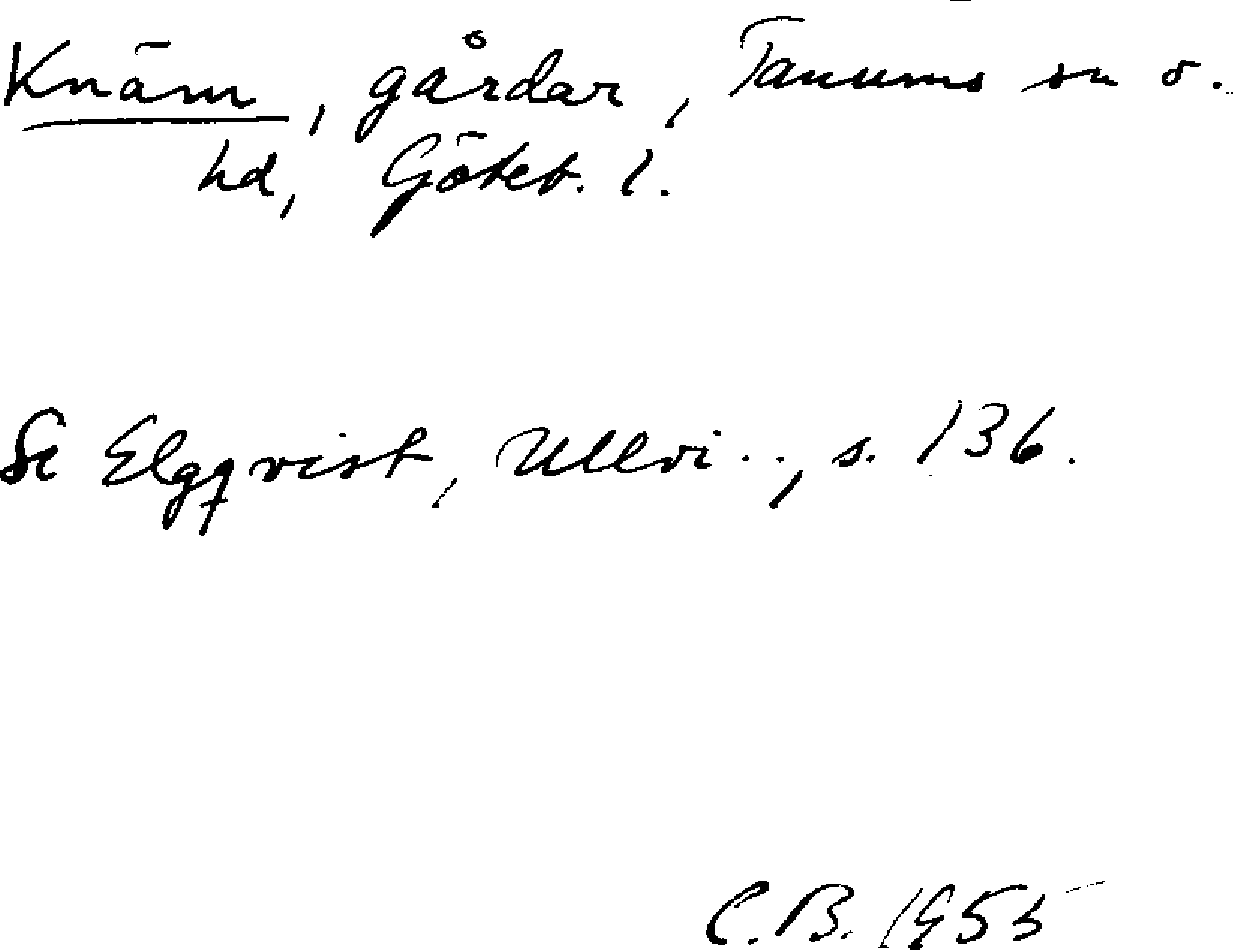 Knäm, gårdar, Tanums sn o.
hd, Göteb. l.
Se Elgqvist, Ullvi.., s. 136.
C.B. 1955